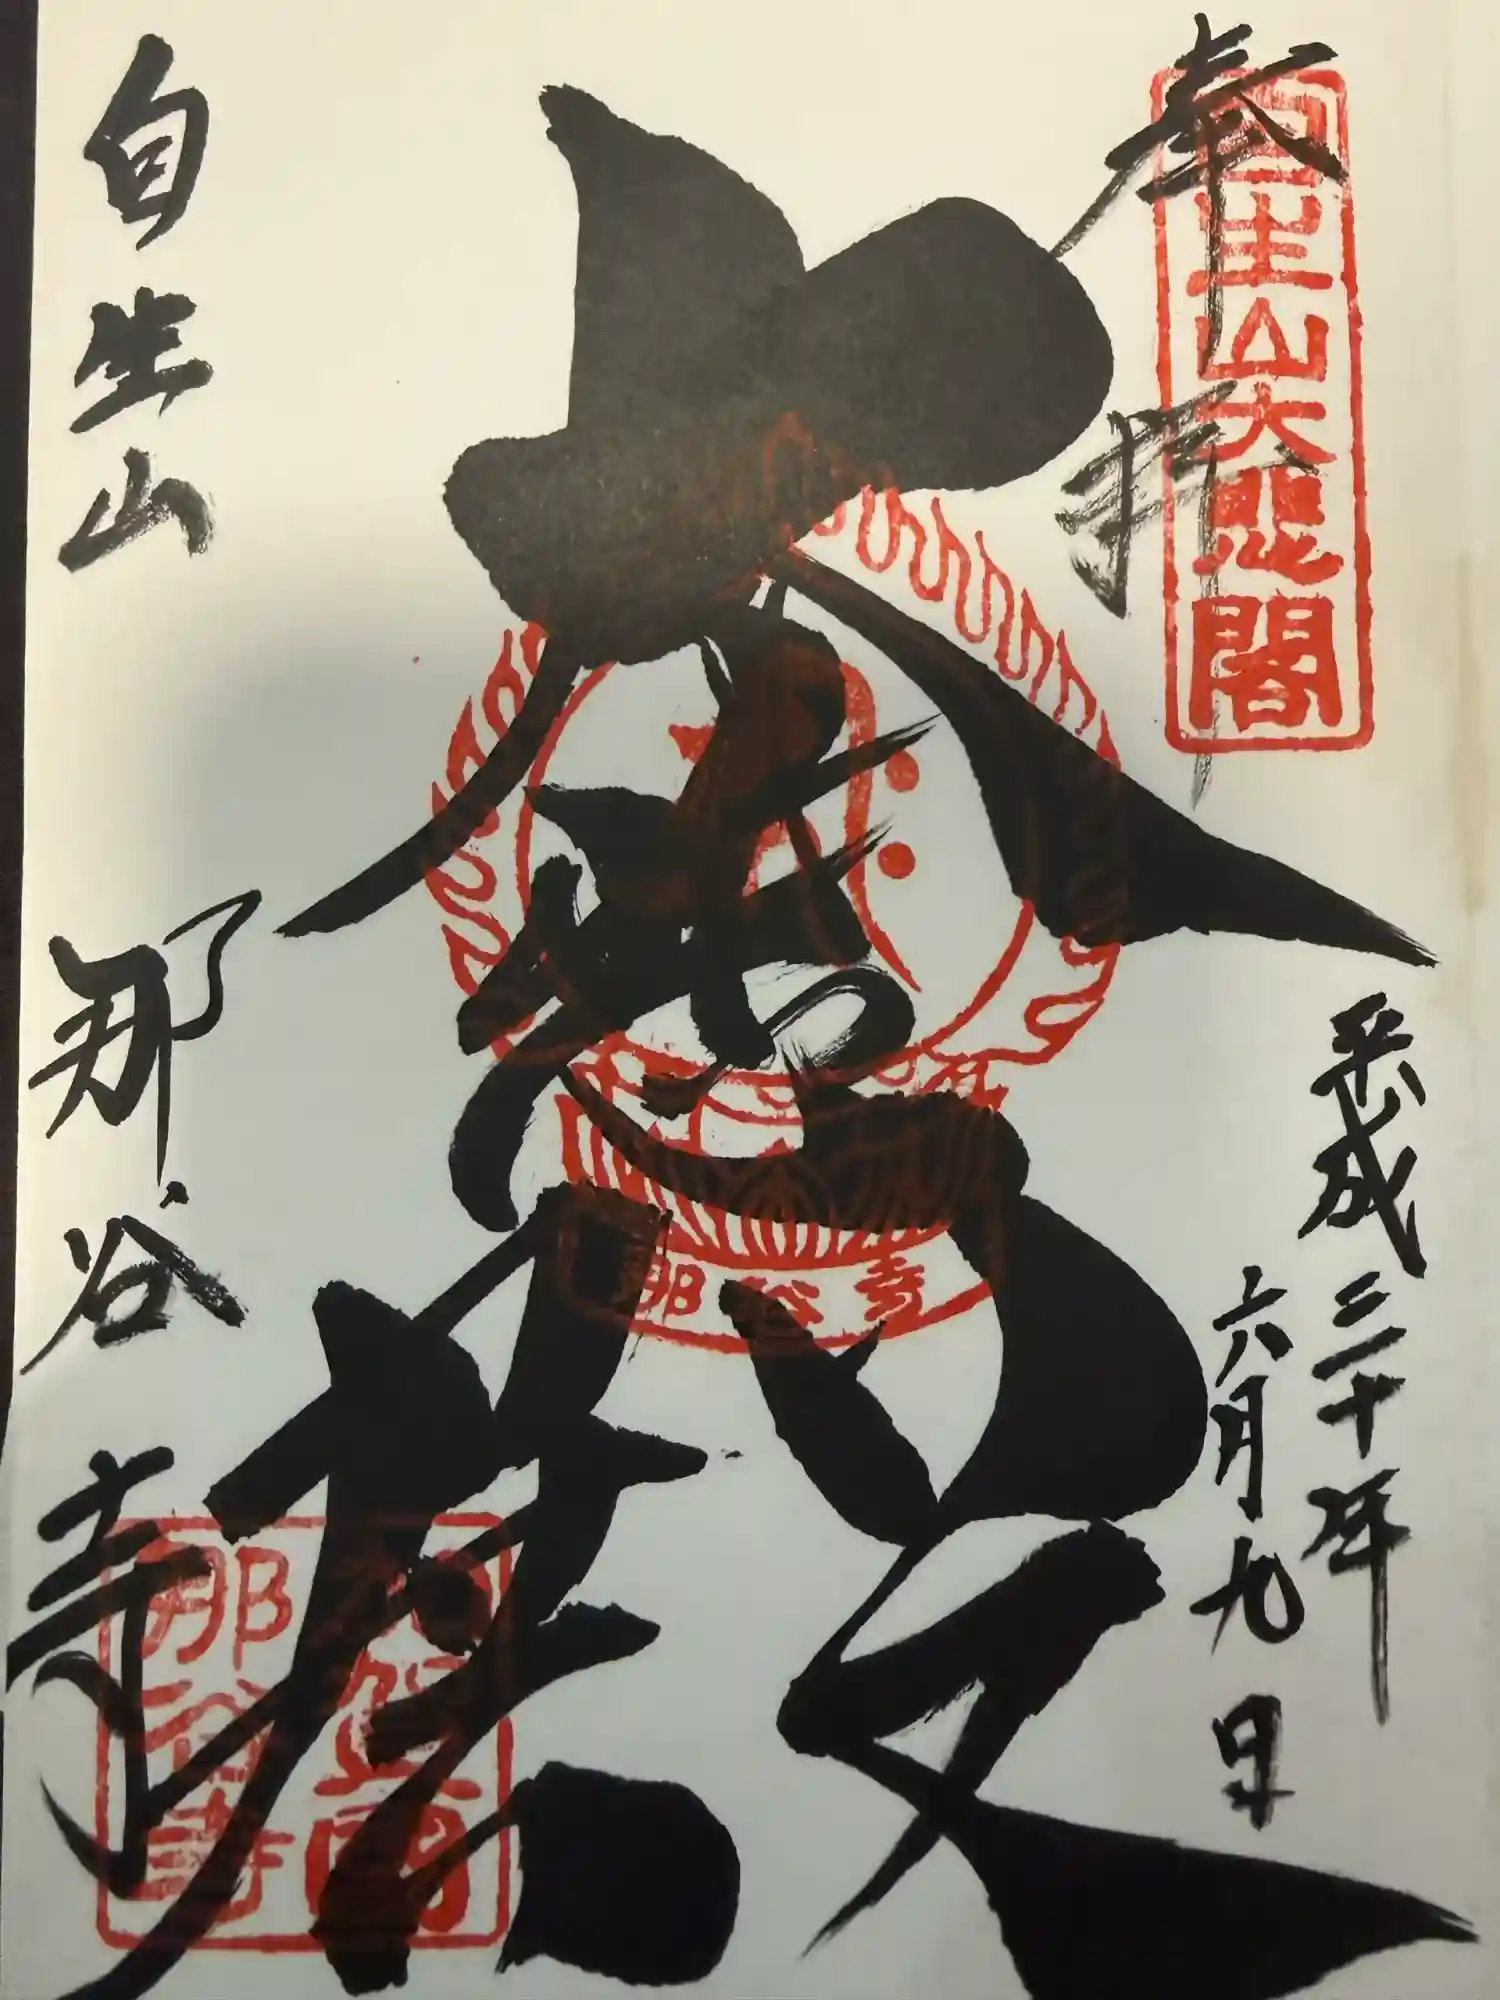 奉拝
自生山大悲閣
平成三十年
六月九日
大悲殿
那谷寺
自生山
那谷寺
加賀國
那谷寺